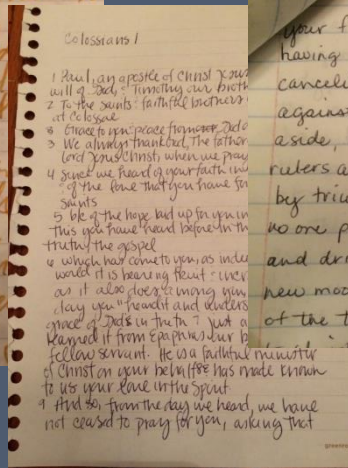 Colossians 1
1 Paul, an apostle of Christ Jesus
will of God, Timothy our broth
2 To the saints & faithful brothers
at Colossae
Grace to you & peace from God o
3 We always thank God, the father
lord Jesus Christ, when we pray
4 since we heard of your faith in
of the love that you have for
saints
5 b/c of the hope laid up for you in
this you have heard before in th
truth, the gospel
6 which has come to you, as indee
world it is bearing fruit & incr
as it also does among you,
day you heard it and unders
grace of God in truth 7 just a
learned it from Epaphras our b
fellow servant. He is a faithful minister
of Christ on your behalf 8 & has made known
to us your love in the Spirit
9 And so, from the day we heard, we have
not ceased to pray for you, asking that
your f
having
cancel
against
aside,
rulers a
by triu
no one p
and dri
new moo
of the t